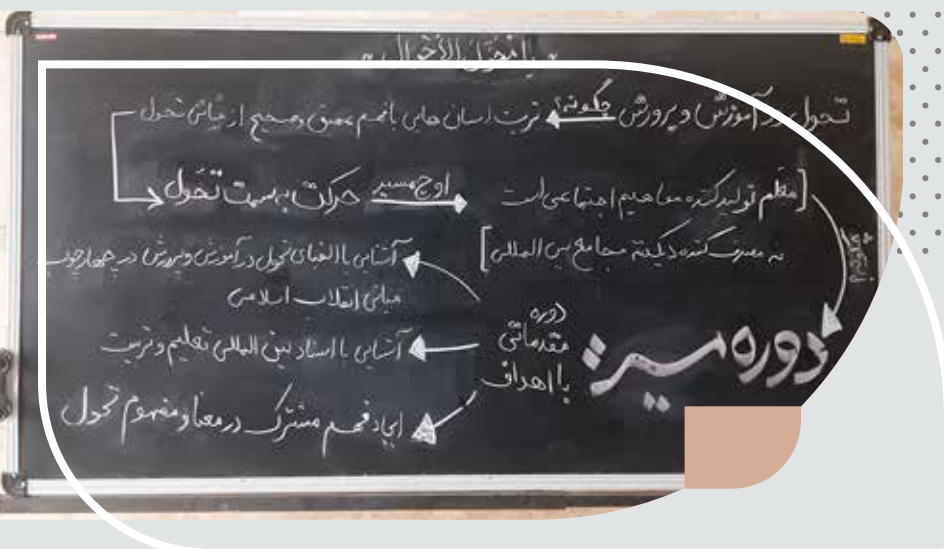 یا محول الأحوال
تحول در آموزش و پرورش چگونه؟ تربیت انسان هایی با فهم عمیق و صحیح از مبانی تحول
حرکت به سمت تحول اوج مسیر [معلم تولید کننده مفاهیم اجتماعی است
نه مصرف کننده دیکته مجامع بین المللی]
دوره سیژ
دوره
مقدماتی
با اهداف
آشنایی با الفبای تحول در آموزش و پرورش در چهارچوب
مبانی انقلاب اسلامی
آشنایی با اسناد بین المللی تعلیم و تربیت
ایجاد فهم مشترک در معنا و مفهوم تحول